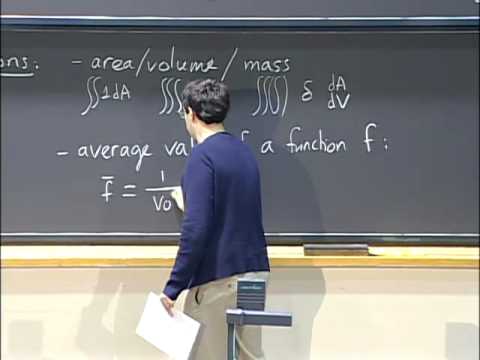 ons: - area/volume/mass
∬1dA ∭ ∭) δ dA
dV
- average val f a function f:
f̄ = 1
Vo